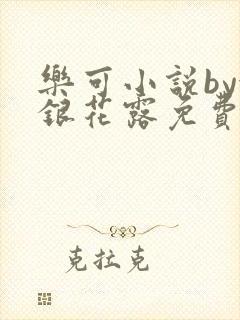 樂可小說by
銀花露免費
克拉克